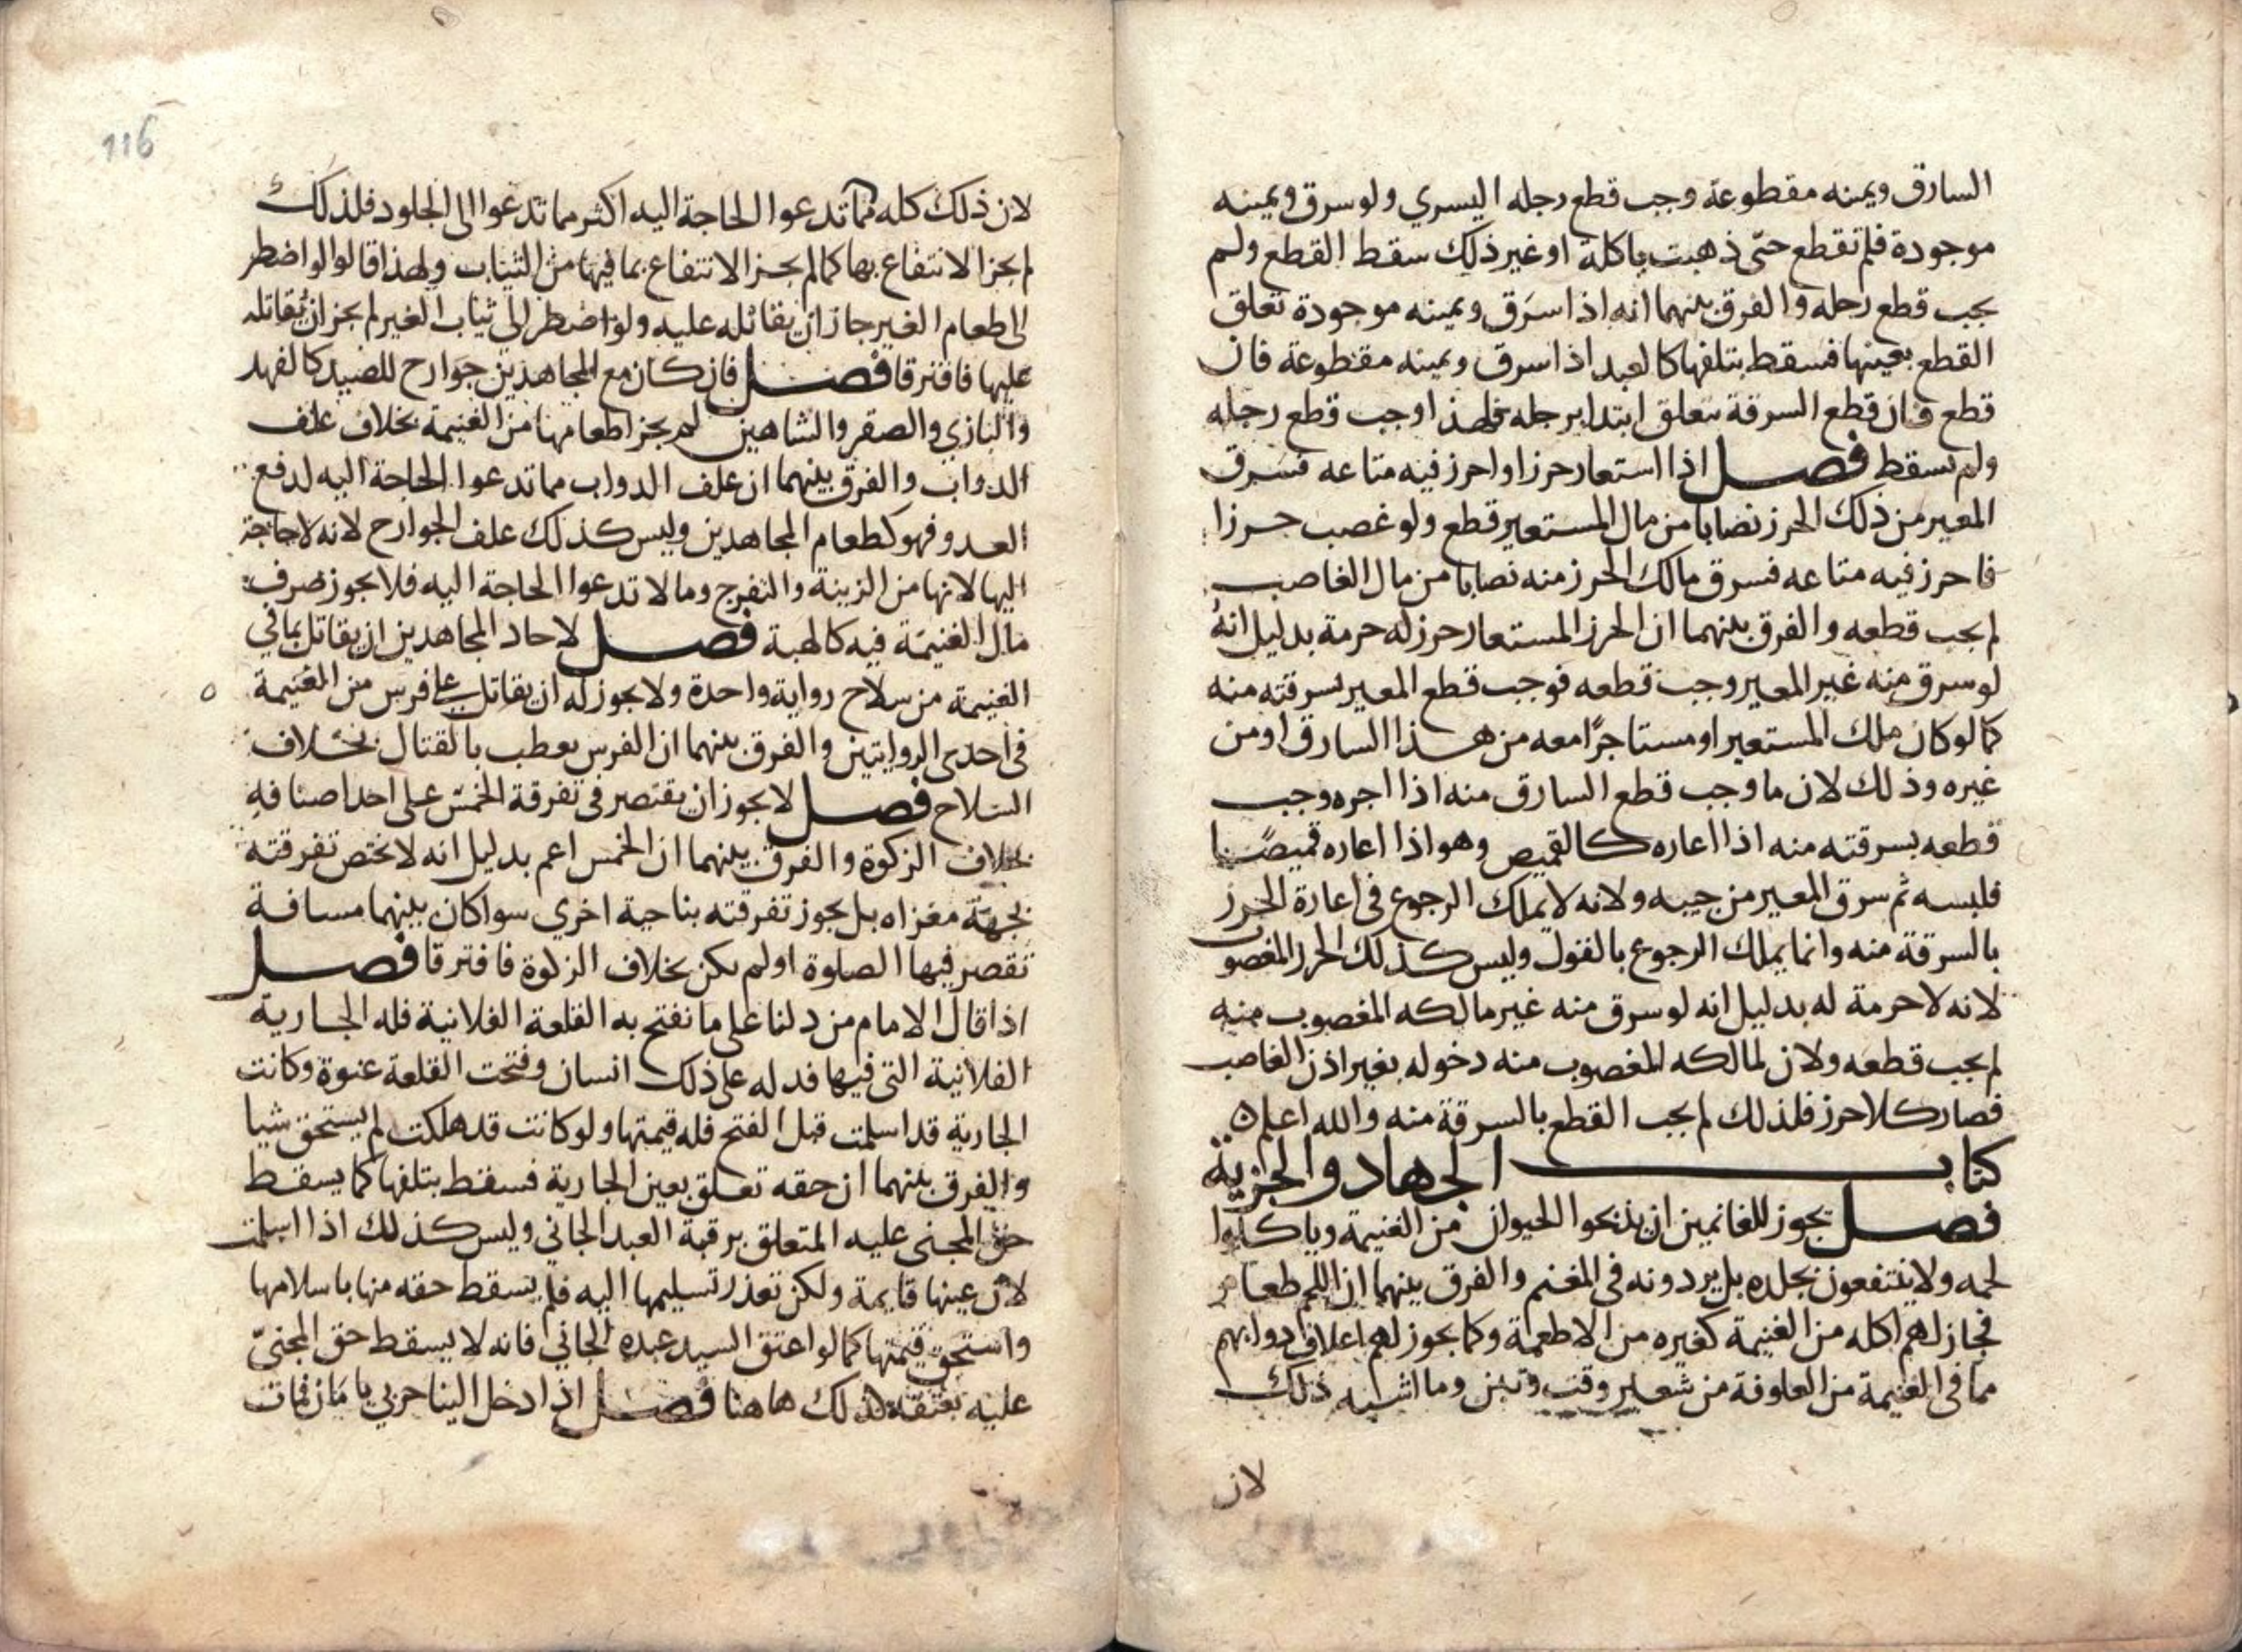 السارق ويمينه مقطوعة وجب قطع رجله اليسري ولو سرق ويمينه
موجودة فلم تقطع حتى ذهبت باكلة او غير ذلك سقط القطع ولم
يجب قطع رجله والفرق بينهما انه اذا سرق ويمينه موجودة تعلق
القطع بعينها فسقط بتلفها كالعبد اذا سرق ويمينه مقطوعة فان
قطع فان قطع السرقة يتعلق ابتدا برجله فلهذا وجب قطع رجله
ولم يسقط فصل اذا استعار حرزا واحرز فيه متاعه فسرق
المعير من ذلك الحرز نصابا من مال المستعير قطع ولو غصب حرزا
فاحرز فيه متاعه فسرق مالك الحرز منه نصابا من مال الغاصب
لم يجب قطعه والفرق بينهما ان الحرز المستعار حرز له حرمة بدليل انه
لو سرق منه غير المعير وجب قطعه فوجب قطع المعير بسرقته منه
كما لو كان ملك المستعير او مستاجرا معه من هذا السارق او من
غيره وذلك لان ما وجب قطع السارق منه اذا اجره وجب
قطعه بسرقته منه اذا اعاره كالقميص وهو اذا اعاره قميصا
فلبسه ثم سرق المعير من جيبه ولانه لا يملك الرجوع في اعارة الحرز
بالسرقة منه وانما يملك الرجوع بالقول وليس كذلك الحرز المغصوب
لانه لا حرمة له بدليل انه لو سرق منه غير مالكه المغصوب منه
لم يجب قطعه ولان لمالكه المغصوب منه دخوله بغير اذن الغاصب
فصار كلا حرز فلذلك لم يجب القطع بالسرقة منه والله اعلم
كتاب الجهاد والجزية
فصل يجوز للغانمين ان يذبحوا الحيوان من الغنيمة وياكلوا
لحمه ولا ينتفعون بجلده بل يردونه في المغنم والفرق بينهما ان اللحم طعام
فجاز لهم اكله من الغنيمة كغيره من الاطعمة وكما يجوز لهم اعلاف دوابهم
مما في الغنيمة من العلوفة من شعير وقت وتبن وما اشبه ذلك
لان
116
لان ذلك كله مما تدعوا الحاجة اليه اكثر مما تدعوا الى الجلود فلذلك
لم يجز الانتفاع بها كما لم يجز الانتفاع بما فيها من الثياب ولهذا قالوا لو اضطر
الى طعام الغير جاز ان يقاتله عليه ولو اضطر الى ثياب الغير لم يجز ان يقاتله
عليها فافترقا فصل فان كان مع المجاهدين جوارح للصيد كالفهد
والبازي والصقر والشاهين لم يجز اطعامها من الغنيمة بخلاف علف
الدواب والفرق بينهما ان علف الدواب مما تدعوا الحاجة اليه لدفع
العدو فهو كطعام المجاهدين وليس كذلك علف الجوارح لانه لا حاجة
اليها لانها من الزينة والتفرج وما لا تدعوا الحاجة اليه فلا يجوز صرف
مال الغنيمة فيه كالهبة فصل لاحاد المجاهدين ان يقاتل بما في
الغنيمة من سلاح رواية واحدة ولا يجوز له ان يقاتل على فرس من الغنيمة
في احدى الروايتين والفرق بينهما ان الفرس يعطب بالقتال بخلاف
السلاح فصل لا يجوز ان يقتصر في تفرقة الخمس على احد اصنافه
بخلاف الزكوة والفرق بينهما ان الخمس اعم بدليل انه لا يختص تفرقته
بجهة مغزاه بل يجوز تفرقته بناحية اخري سوا كان بينهما مسافة
تقصر فيها الصلوة او لم يكن بخلاف الزكوة فافترقا فصل
اذا قال الامام من دلنا على ما نفتح به القلعة الفلانية فله الجارية
الفلانية التي فيها فدله على ذلك انسان وفتحت القلعة عنوة وكانت
الجارية قد اسلمت قبل الفتح فله قيمتها ولو كانت قد هلكت لم يستحق شيا
والفرق بينهما ان حقه تعلق بعين الجارية فسقط بتلفها كما يسقط
حق المجنى عليه المتعلق برقبة العبد الجاني وليس كذلك اذا اسلمت
لان عينها قايمة ولكن تعذر تسليمها اليه فلم يسقط حقه منها باسلامها
واستحق قيمتها كما لو اعتق السيد عبده الجاني فانه لا يسقط حق المجنيّ
عليه بعتقه كذلك هاهنا فصل اذا دخل الينا حربي بامان فمات